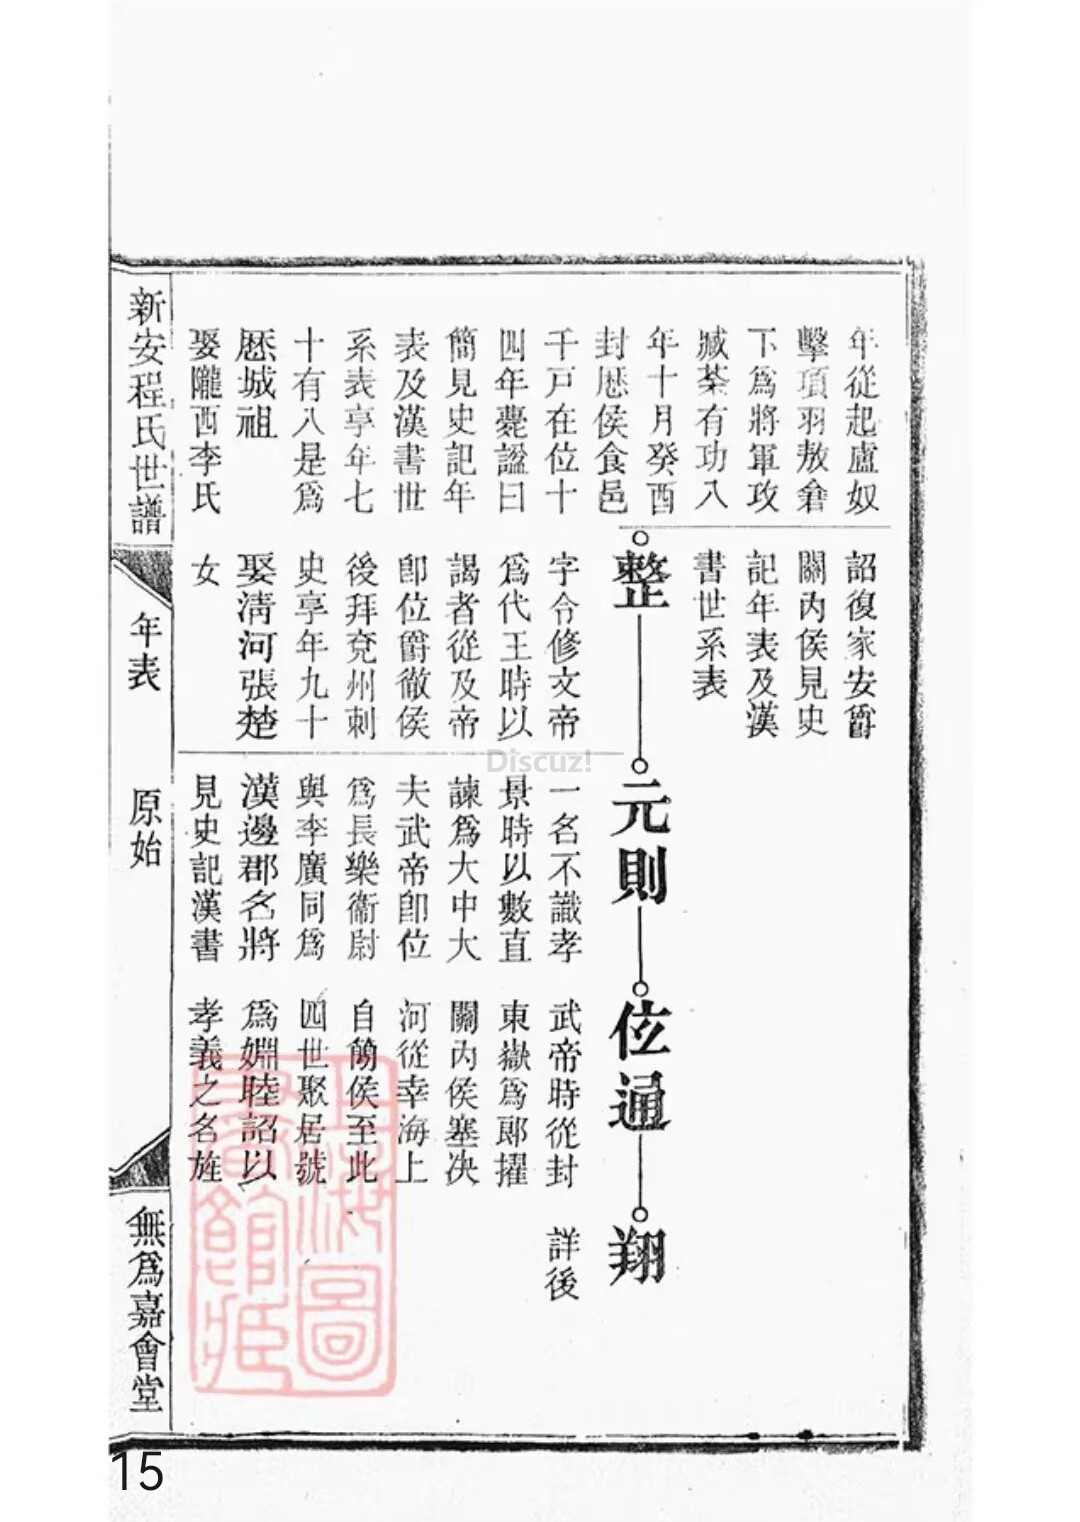 年從起盧奴
擊項羽敖倉
下爲將軍攻
臧荼有功八
年十月癸酉
封厯侯食邑
千戸在位十
四年薨諡曰
簡見史記年
表及漢書世
系表享年七
十有八是爲
厯城祖
娶隴西李氏
詔復家安爵
關內侯見史
記年表及漢
書世系表
整
字令修文帝
爲代王時以
謁者從及帝
卽位爵徹侯
後拜兗州刺
史享年九十
娶淸河張楚
女
元則
一名不識孝
景時以數直
諫爲大中大
夫武帝卽位
爲長樂衞尉
與李廣同爲
漢邊郡名將
見史記漢書
伭通
武帝時從封
東嶽爲郞擢
關內侯塞决
河從幸海上
自簡侯至此
四世聚居號
爲婣睦詔以
孝義之名旌
翔
詳後
新安程氏世譜
年表
原始
無爲嘉會堂
上海圖
書館藏
Discuz!
15